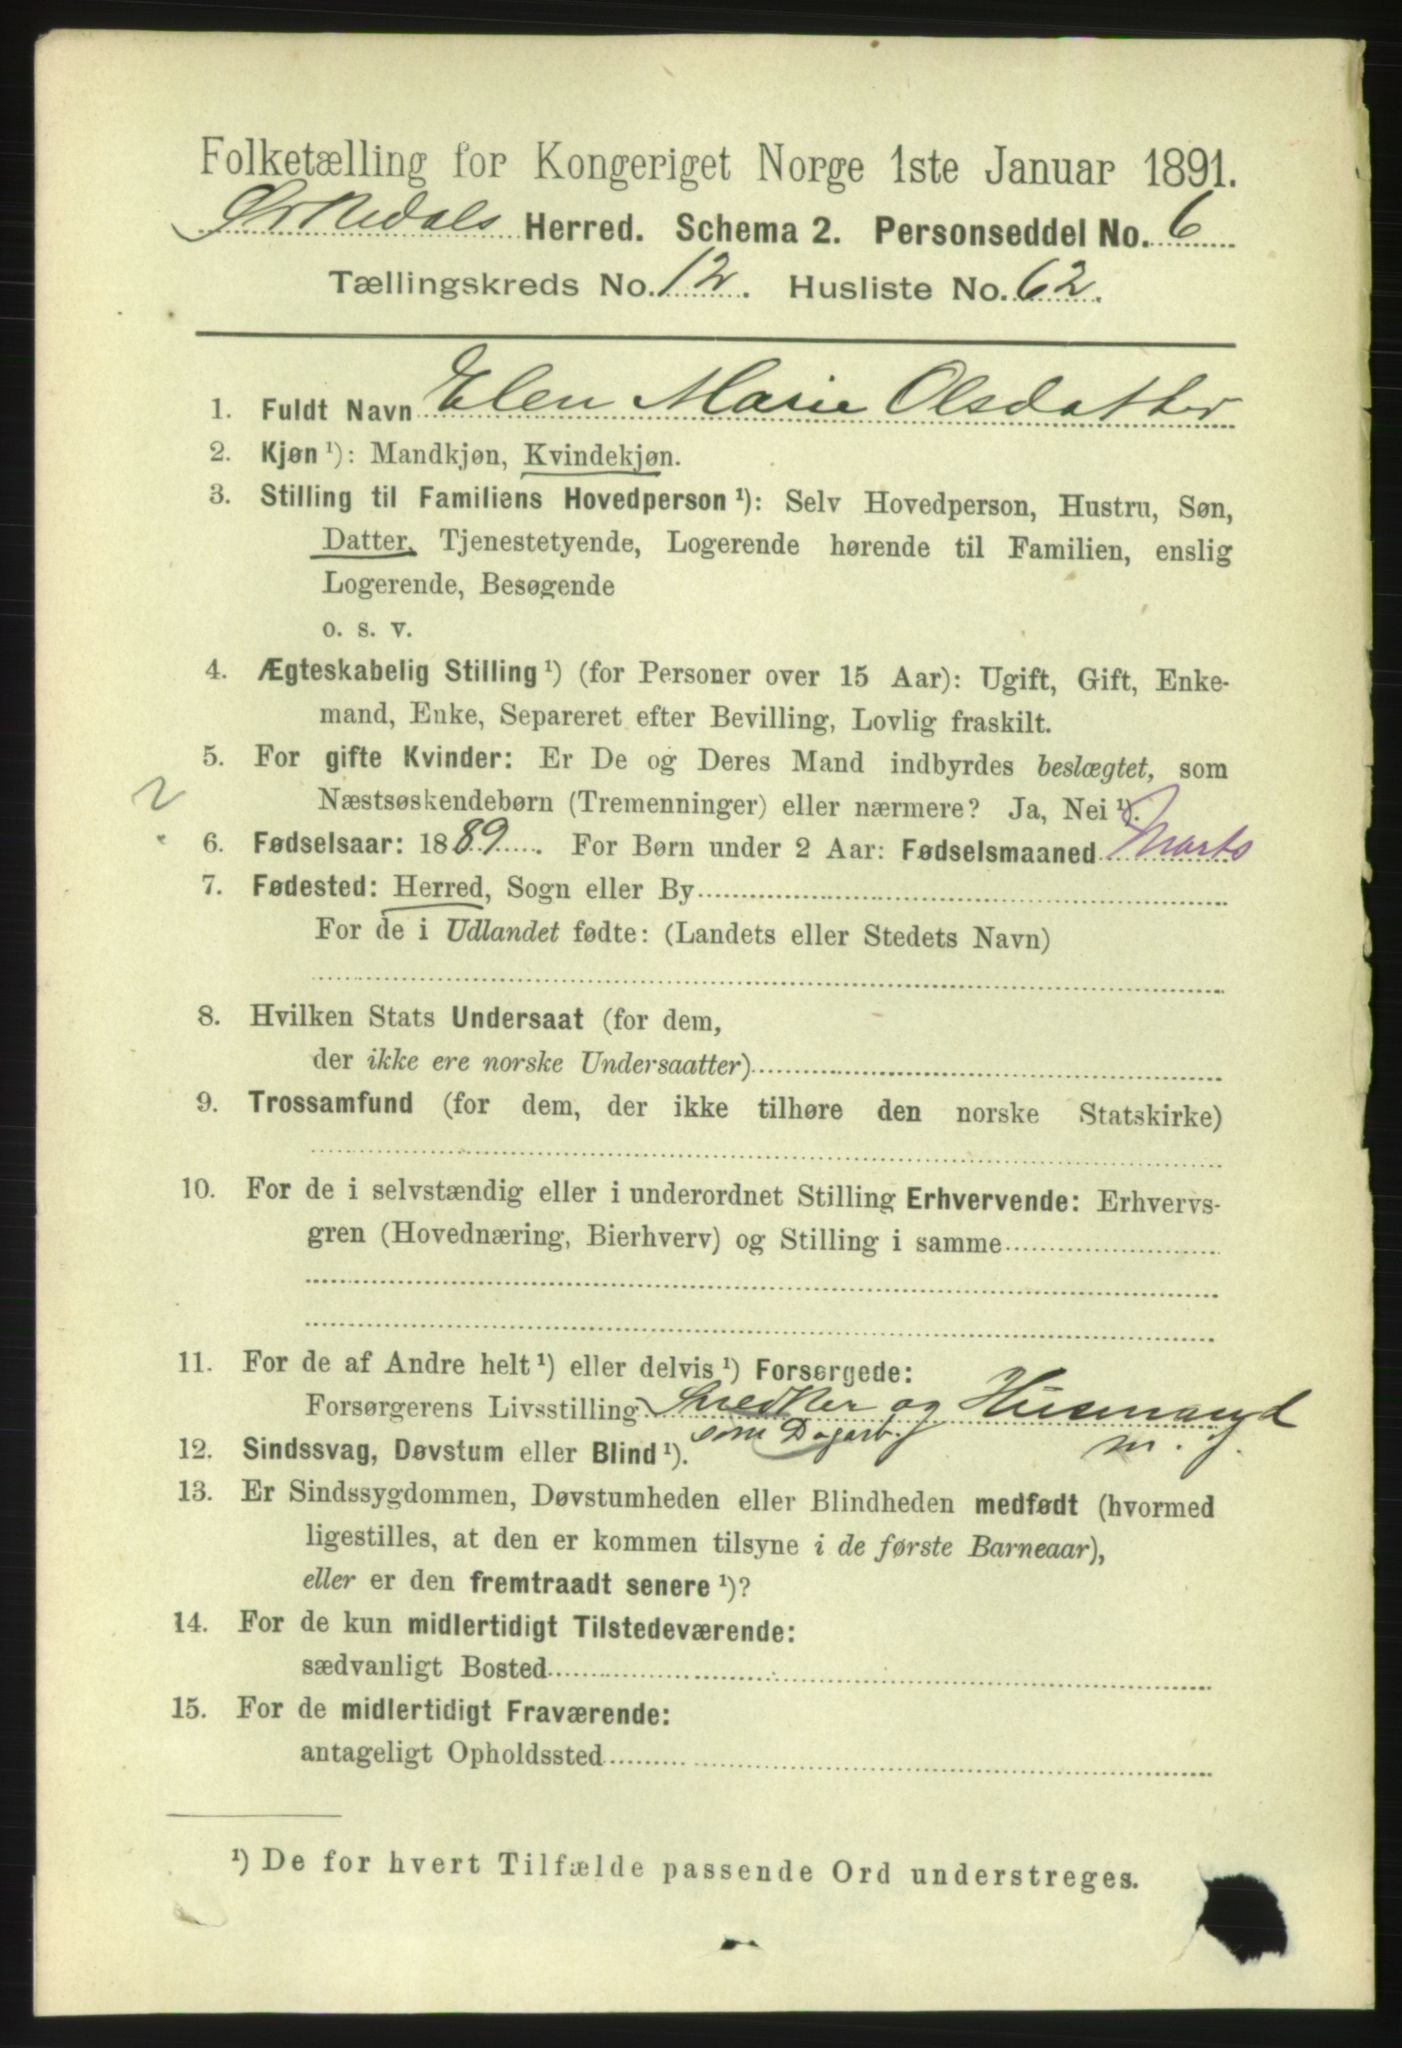 Folketælling for Kongeriget Norge 1ste Januar 1891.
Orkedals Herred. Schema 2. Personseddel No. 6
Tællingskreds No. 12. Husliste No. 62.
1. Fuldt Navn Elen Marie Olsdatter
2. Kjøn ¹): Mandkjøn, Kvindekjøn.
3. Stilling til Familiens Hovedperson ¹): Selv Hovedperson, Hustru, Søn,
Datter, Tjenestetyende, Logerende hørende til Familien, enslig
Logerende, Besøgende
o. s. v.
4. Ægteskabelig Stilling ¹) (for Personer over 15 Aar): Ugift, Gift, Enke-
mand, Enke, Separeret efter Bevilling, Lovlig fraskilt.
5. For gifte Kvinder: Er De og Deres Mand indbyrdes beslægtet, som
Næstsøskendebørn (Tremenninger) eller nærmere? Ja, Nei ¹).
?
6. Fødselsaar: 1889. For Børn under 2 Aar: Fødselsmaaned Marts
7. Fødested: Herred, Sogn eller By
For de i Udlandet fødte: (Landets eller Stedets Navn)
8. Hvilken Stats Undersaat (for dem,
der ikke ere norske Undersaatter)
9. Trossamfund (for dem, der ikke tilhøre den norske Statskirke)
10. For de i selvstændig eller i underordnet Stilling Erhvervende: Erhvervs-
gren (Hovednæring, Bierhverv) og Stilling i samme
11. For de af Andre helt ¹) eller delvis ¹) Forsørgede:
Forsørgerens Livsstilling Snedker og Husmand
som Dagarb. m. j.
12. Sindssvag, Døvstum eller Blind ¹).
13. Er Sindssygdommen, Døvstumheden eller Blindheden medfødt (hvormed
ligestilles, at den er kommen tilsyne i de første Barneaar),
eller er den fremtraadt senere ¹)?
14. For de kun midlertidigt Tilstedeværende:
sædvanligt Bosted
15. For de midlertidigt Fraværende:
antageligt Opholdssted
¹) De for hvert Tilfælde passende Ord understreges.